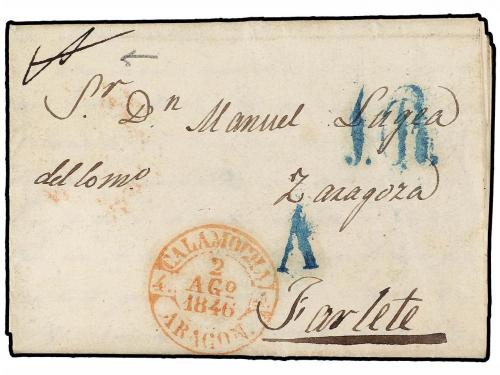 Sr. Dn. Manuel
1R.
del Como.
Zaragoza
A
CALAMOCHA
2
AGO.
1846
ARAGON.
Farlete